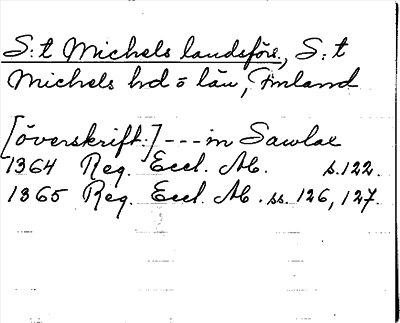 S:t Michels landsförs., S:t
Michels hd o län, Finland
[överskrift:] --- in Sawlax
1364 Reg. Eccl. Ab. s. 122.
1365 Reg. Eccl. Ab. ss. 126, 127.